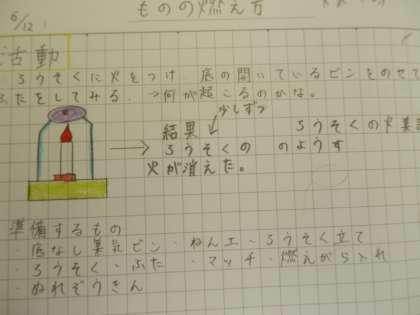 ものの燃え方
6/12
活動
ろうそくに火をつけ、底の開いているビンをのせて
ふたをしてみる。→何が起こるのかな。
少しずつ
結果
ろうそくの火
ろうそくの のようす
火が消えた。
準備するもの
・底なし集気ビン・ねん土・ろうそく立て
・ろうそく・ふた・マッチ・燃えがら入れ
・ぬれぞうきん